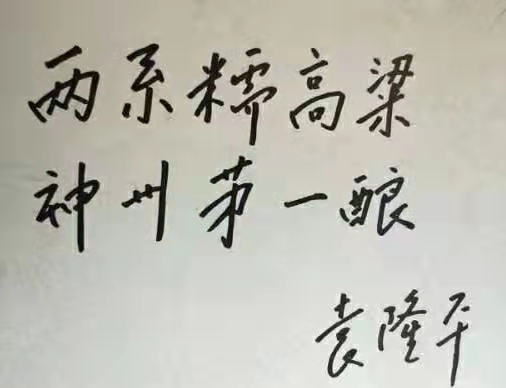 两系糯高粱
神州第一酿
袁隆平